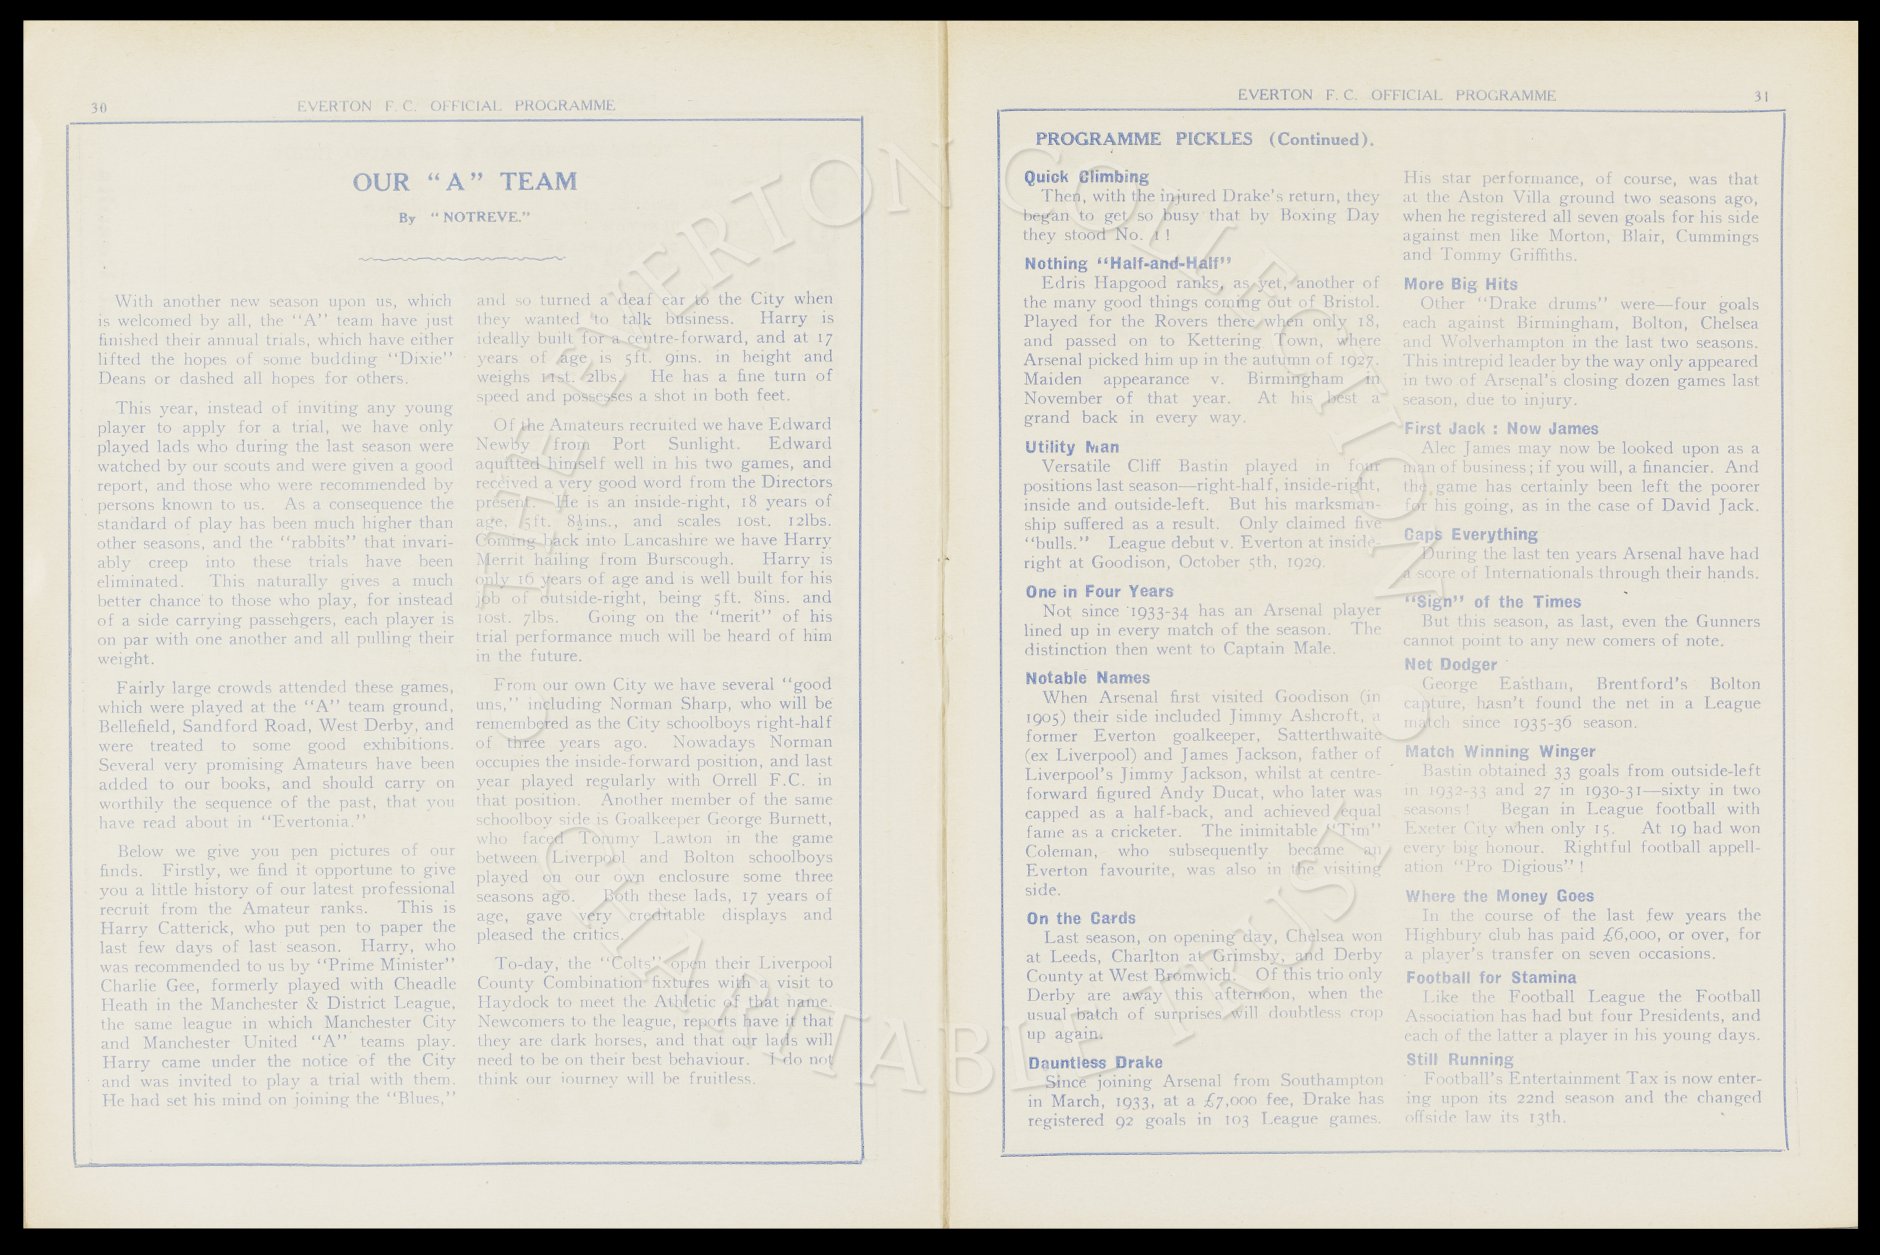 30
EVERTON F. C. OFFICIAL PROGRAMME
OUR "A" TEAM
By "NOTREVE."
With another new season upon us, which
is welcomed by all, the "A" team have just
finished their annual trials, which have either
lifted the hopes of some budding "Dixie"
Deans or dashed all hopes for others.
This year, instead of inviting any young
player to apply for a trial, we have only
played lads who during the last season were
watched by our scouts and were given a good
report, and those who were recommended by
persons known to us. As a consequence the
standard of play has been much higher than
other seasons, and the "rabbits" that invari-
ably creep into these trials have been
eliminated. This naturally gives a much
better chance to those who play, for instead
of a side carrying passengers, each player is
on par with one another and all pulling their
weight.
Fairly large crowds attended these games,
which were played at the "A" team ground,
Bellefield, Sandford Road, West Derby, and
were treated to some good exhibitions.
Several very promising Amateurs have been
added to our books, and should carry on
worthily the sequence of the past, that you
have read about in "Evertonia."
Below we give you pen pictures of our
finds. Firstly, we find it opportune to give
you a little history of our latest professional
recruit from the Amateur ranks. This is
Harry Catterick, who put pen to paper the
last few days of last season. Harry, who
was recommended to us by "Prime Minister"
Charlie Gee, formerly played with Cheadle
Heath in the Manchester & District League,
the same league in which Manchester City
and Manchester United "A" teams play.
Harry came under the notice of the City
and was invited to play a trial with them.
He had set his mind on joining the "Blues,"
and so turned a deaf ear to the City when
they wanted to talk business. Harry is
ideally built for a centre-forward, and at 17
years of age is 5ft. 9ins. in height and
weighs 11st. 2lbs. He has a fine turn of
speed and possesses a shot in both feet.
Of the Amateurs recruited we have Edward
Newby from Port Sunlight. Edward
aquitted himself well in his two games, and
received a very good word from the Directors
present. He is an inside-right, 18 years of
age, 5ft. 8½ins., and scales 10st. 12lbs.
Coming back into Lancashire we have Harry
Merrit hailing from Burscough. Harry is
only 16 years of age and is well built for his
job of outside-right, being 5ft. 8ins. and
10st. 7lbs. Going on the "merit" of his
trial performance much will be heard of him
in the future.
From our own City we have several "good
uns," including Norman Sharp, who will be
remembered as the City schoolboys right-half
of three years ago. Nowadays Norman
occupies the inside-forward position, and last
year played regularly with Orrell F.C. in
that position. Another member of the same
schoolboy side is Goalkeeper George Burnett,
who faced Tommy Lawton in the game
between Liverpool and Bolton schoolboys
played on our own enclosure some three
seasons ago. Both these lads, 17 years of
age, gave very creditable displays and
pleased the critics.
To-day, the "Colts" open their Liverpool
County Combination fixtures with a visit to
Haydock to meet the Athletic of that name.
Newcomers to the league, reports have it that
they are dark horses, and that our lads will
need to be on their best behaviour. I do not
think our journey will be fruitless.
EVERTON F. C. OFFICIAL PROGRAMME
31
PROGRAMME PICKLES (Continued).
Quick Climbing
Then, with the injured Drake's return, they
began to get so busy that by Boxing Day
they stood No. 1 !
Nothing "Half-and-Half"
Edris Hapgood ranks, as yet, another of
the many good things coming out of Bristol.
Played for the Rovers there when only 18,
and passed on to Kettering Town, where
Arsenal picked him up in the autumn of 1927.
Maiden appearance v. Birmingham in
November of that year. At his best a
grand back in every way.
Utility Man
Versatile Cliff Bastin played in four
positions last season—right-half, inside-right,
inside and outside-left. But his marksman-
ship suffered as a result. Only claimed five
"bulls." League debut v. Everton at inside-
right at Goodison, October 5th, 1929.
One in Four Years
Not since 1933-34 has an Arsenal player
lined up in every match of the season. The
distinction then went to Captain Male.
Notable Names
When Arsenal first visited Goodison (in
1905) their side included Jimmy Ashcroft, a
former Everton goalkeeper, Satterthwaite
(ex Liverpool) and James Jackson, father of
Liverpool's Jimmy Jackson, whilst at centre-
forward figured Andy Ducat, who later was
capped as a half-back, and achieved equal
fame as a cricketer. The inimitable "Tim"
Coleman, who subsequently became an
Everton favourite, was also in the visiting
side.
On the Cards
Last season, on opening day, Chelsea won
at Leeds, Charlton at Grimsby, and Derby
County at West Bromwich. Of this trio only
Derby are away this afternoon, when the
usual batch of surprises will doubtless crop
up again.
Dauntless Drake
Since joining Arsenal from Southampton
in March, 1933, at a £7,000 fee, Drake has
registered 92 goals in 103 League games.
His star performance, of course, was that
at the Aston Villa ground two seasons ago,
when he registered all seven goals for his side
against men like Morton, Blair, Cummings
and Tommy Griffiths.
More Big Hits
Other "Drake drums" were—four goals
each against Birmingham, Bolton, Chelsea
and Wolverhampton in the last two seasons.
This intrepid leader by the way only appeared
in two of Arsenal's closing dozen games last
season, due to injury.
First Jack : Now James
Alec James may now be looked upon as a
man of business; if you will, a financier. And
the game has certainly been left the poorer
for his going, as in the case of David Jack.
Caps Everything
During the last ten years Arsenal have had
a score of Internationals through their hands.
"Sign" of the Times
But this season, as last, even the Gunners
cannot point to any new comers of note.
Net Dodger
George Eastham, Brentford's Bolton
capture, hasn't found the net in a League
match since 1935-36 season.
Match Winning Winger
Bastin obtained 33 goals from outside-left
in 1932-33 and 27 in 1930-31—sixty in two
seasons! Began in League football with
Exeter City when only 15. At 19 had won
every big honour. Rightful football appell-
ation "Pro Digious"!
Where the Money Goes
In the course of the last few years the
Highbury club has paid £6,000, or over, for
a player's transfer on seven occasions.
Football for Stamina
Like the Football League the Football
Association has had but four Presidents, and
each of the latter a player in his young days.
Still Running
Football's Entertainment Tax is now enter-
ing upon its 22nd season and the changed
offside law its 13th.
THE EVERTON COLLECTION
CHARITABLE TRUST